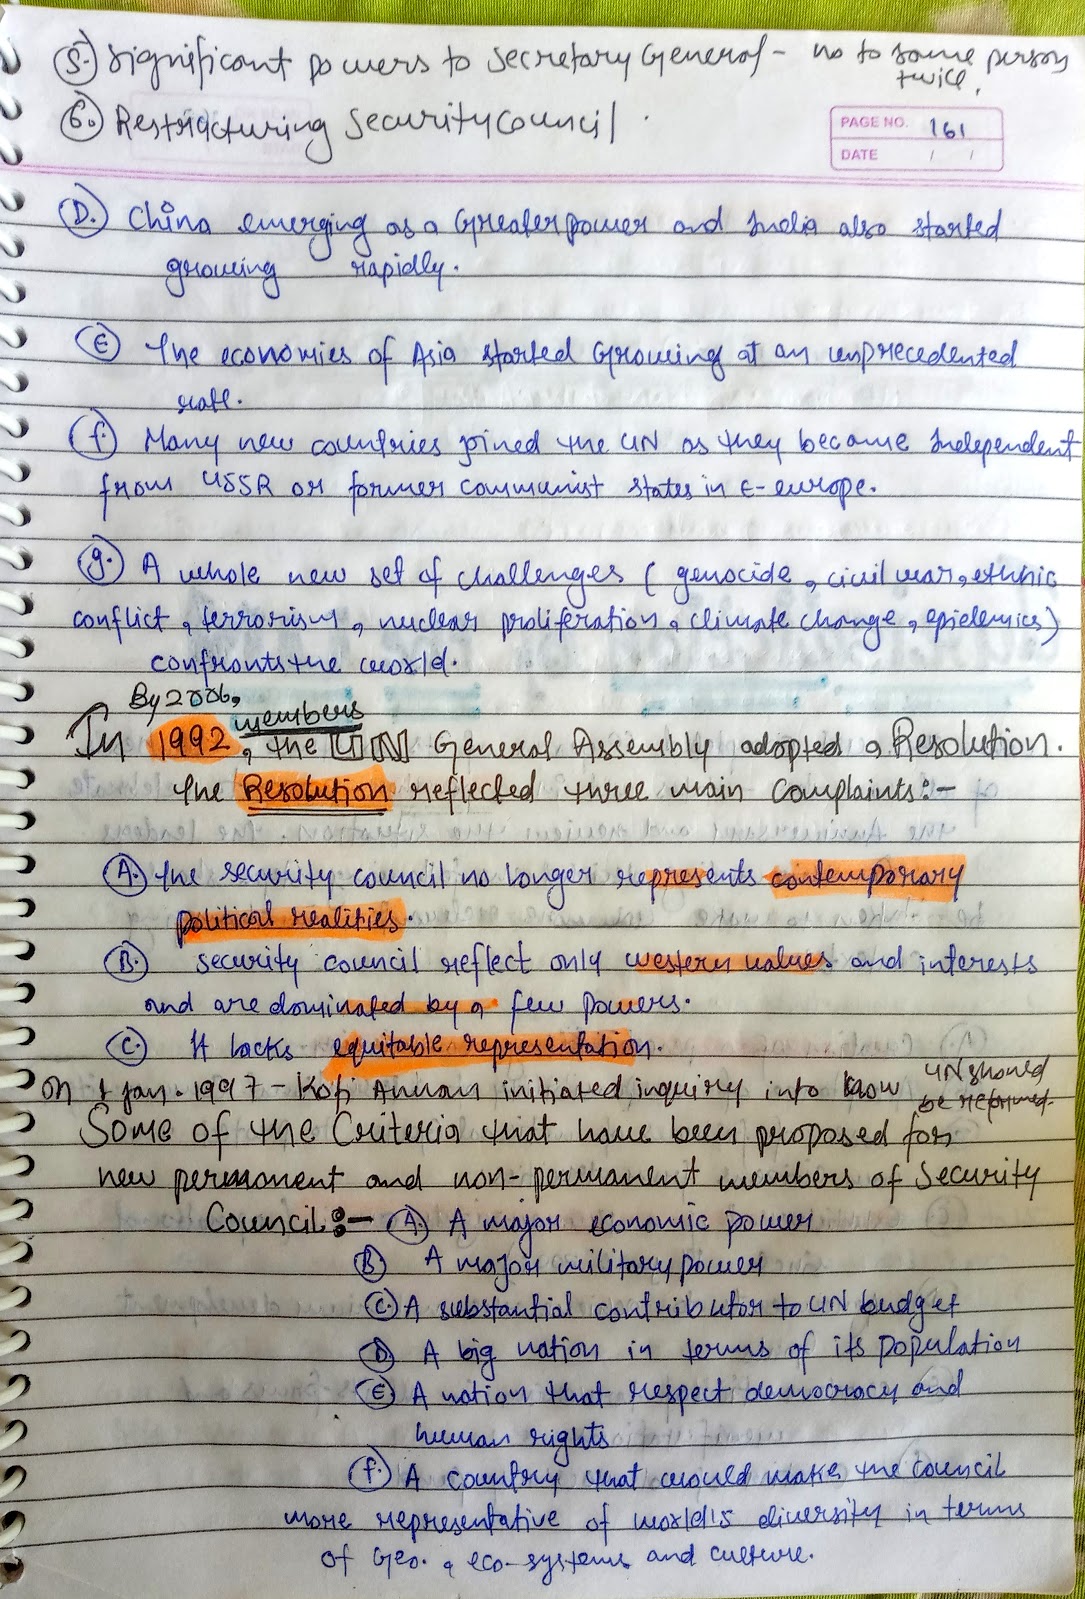 5. Significant powers to Secretary General - no to same person
twice.
6. Restructuring Security Council.
PAGE NO. 161
DATE / /
D. China emerging as a Greater power and India also started
growing rapidly.
E The economies of Asia started Growing at an unprecedented
rate.
f. Many new countries joined the UN as they became Independent
from USSR or former communist states in E-europe.
g. A whole new set of challenges ( genocide, civil war, ethnic
conflict, terrorism, nuclear proliferation, climate change, epidemics)
confronts the world.
By 2006,
members
In 1992, the UN General Assembly adopted a Resolution.
The Resolution reflected three main Complaints:-
A. The security council no longer represents contemporary
political realities.
B. security council reflect only western values and interests
and are dominated by a few powers.
C. It lacks equitable representation.
On 1 Jan. 1997 - Kofi Annan initiated inquiry into how UN should
be reformed.
Some of the Criteria that have been proposed for
new permanent and non-permanent members of Security
Council :- A. A major economic power
B A major military power
C. A substantial contributor to UN budget
D. A big nation in terms of its population
E A nation that respect democracy and
human rights
f. A country that would make the council
more representative of world's diversity in terms
of Geo., eco-systems and culture.